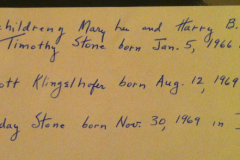 children of Mary Lou and Harry B.
Timothy Stone born Jan. 5, 1966
ott Klingelhofer born Aug. 12, 1969
day Stone born Nov. 30, 1969 in